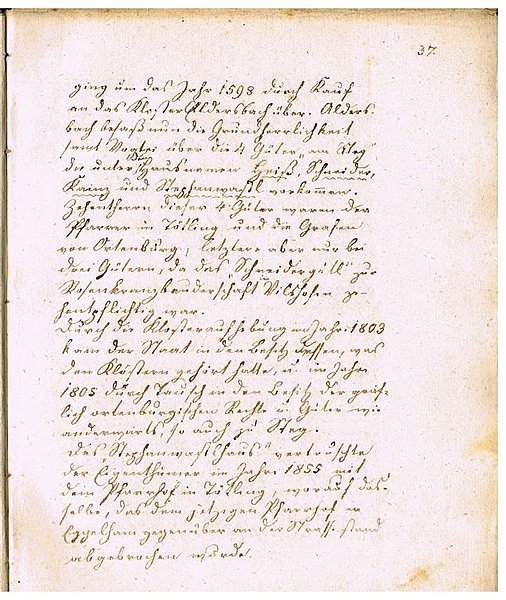 37.
ging um das Jahr 1598 durch Kauf
an das Kloster Aldersbach über. Alders-
bach besaß nun die Grundherrlichkeit
samt Vogtei über die 4 Güter „am Steg"
die unter den Hausnamen Heiß, Schneider,
Kainz und Stephanwastl vorkommen.
Zehentherrn dieser 4 Güter waren der
Pfarrer in Tötling und die Grafen
von Ortenburg; letztere aber nur bei
drei Gütern, da das „Schneidergütl" zur
Rosenkranzbruderschaft in Vilshofen ze-
hentpflichtig war.
Durch die Klosteraufhebung im Jahre 1803
kam der Staat in den Besitz dessen, was
den Klöstern gehört hatte, u. im Jahre
1805 durch Tausch in den Besitz der gräf-
lich ortenburgischen Rechte u. Güter wie
anderwärts, so auch zu Steg.
Das „Stephanwastlhaus" vertauschte
der Eigenthümer im Jahre 1855 mit
dem Pfarrhof in Tötling, worauf das-
selbe, das dem jetzigen Pfarrhof in
Egglham gegenüber an der Strasse stand
abgebrochen wurde.